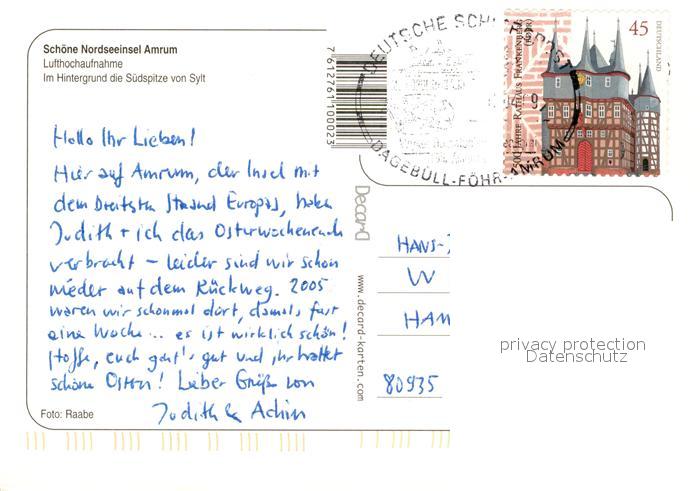 Schöne Nordseeinsel Amrum
Lufthochaufnahme
Im Hintergrund die Südspitze von Sylt
Hallo Ihr Lieben!
Hier auf Amrum, der Insel mit
dem breitsten Strand Europas, haben
Judith + ich das Osterwochenende
verbracht – leider sind wir schon
wieder auf dem Rückweg. 2005
waren wir schonmal dort, damals fast
eine Woche... es ist wirklich schön!
Hoffe, euch geht's gut und ihr hattet
schöne Ostern! Lieber Grüße von
Judith & Achim
Foto: Raabe
7612761100023
Decard
www.decard-karten.com
DEUTSCHE
DAGEBÜLL-FÖHR-AMRUM
500 JAHRE RATHAUS FRANKENBERG
(EDER)
45
DEUTSCHLAND
HANS-
W
HAM
80935
privacy protection
Datenschutz